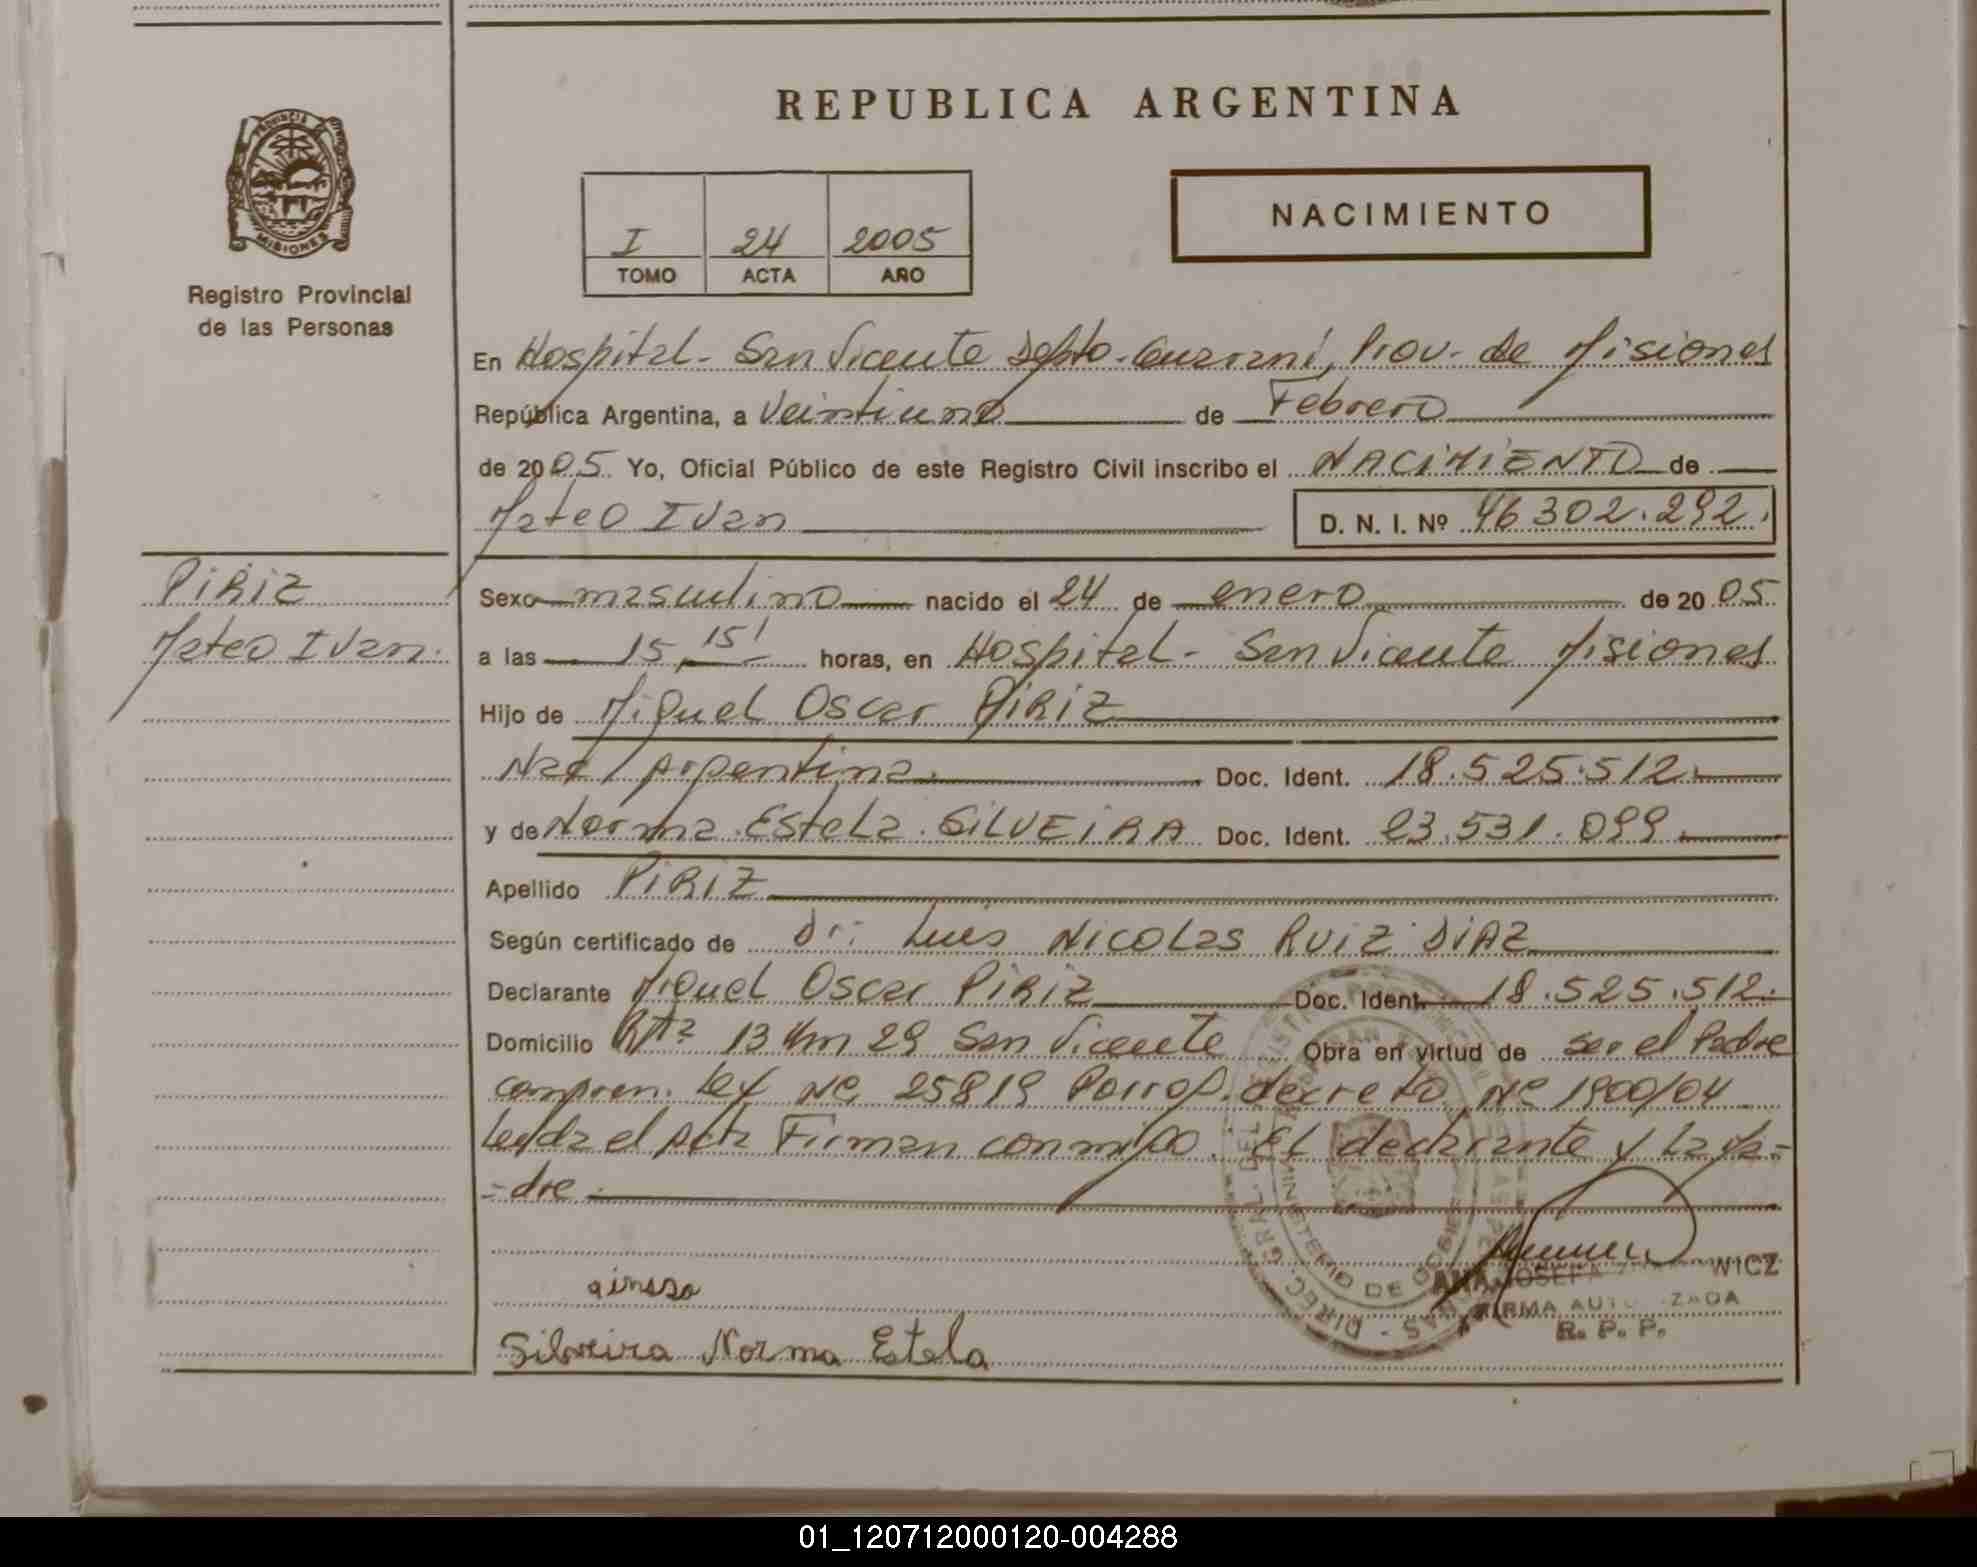 REPUBLICA ARGENTINA
PROVINCIA
MISIONES
Registro Provincial
de las Personas
I 24 2005
TOMO ACTA AÑO
NACIMIENTO
En Hospital - San Vicente Depto. Guaraní, Prov. de Misiones
República Argentina, a Veintiuno de Febrero
de 2005 Yo, Oficial Público de este Registro Civil inscribo el NACIMIENTO de
Mateo Ivan D. N. I. Nº 46302.292.
PIRIZ
Mateo Ivan.
Sexo masculino nacido el 24 de enero de 2005
a las 15,15' horas, en Hospital - San Vicente Misiones
Hijo de Miguel Oscar PIRIZ
Nac/ Argentina. Doc. Ident. 18.525.512.
y de Norma Estela SILVEIRA Doc. Ident. 23.531.099.
Apellido PIRIZ
Según certificado de Dr: Luis Nicolas RUIZ DIAZ
Declarante Miguel Oscar PIRIZ Doc. Ident. 18.525.512.
Domicilio Rta 13 Km 29 San Vicente Obra en virtud de ser el Padre
compren. Ley Nº 25819 Porrog. decreto Nº 1900/04
Leyda el Acta Firman conmigo. El declarante y la Ma-
-dre.
Silveira Norma Estela
ANA JOSEFA WICZ
FIRMA AUTORIZADA
R. P. P.
MINISTERIO DE GOBIE
DIREC. GRAL. DEL
01_120712000120-004288